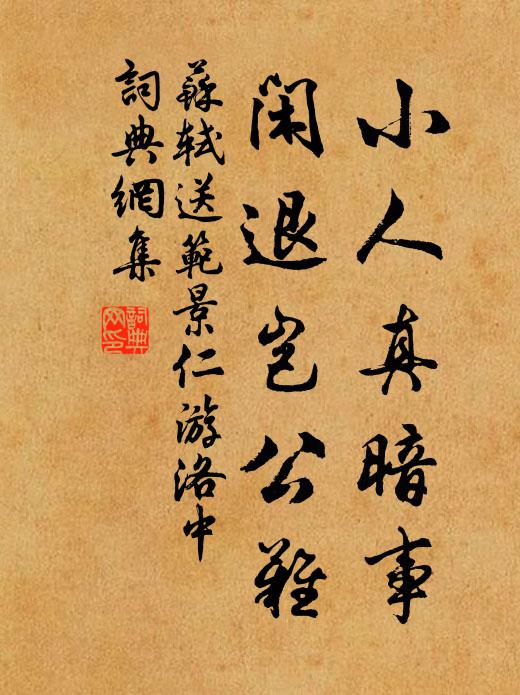 小人真暗事
閑退豈公難
蘇軾送範景仁游洛中
詞典網集
詞典網印